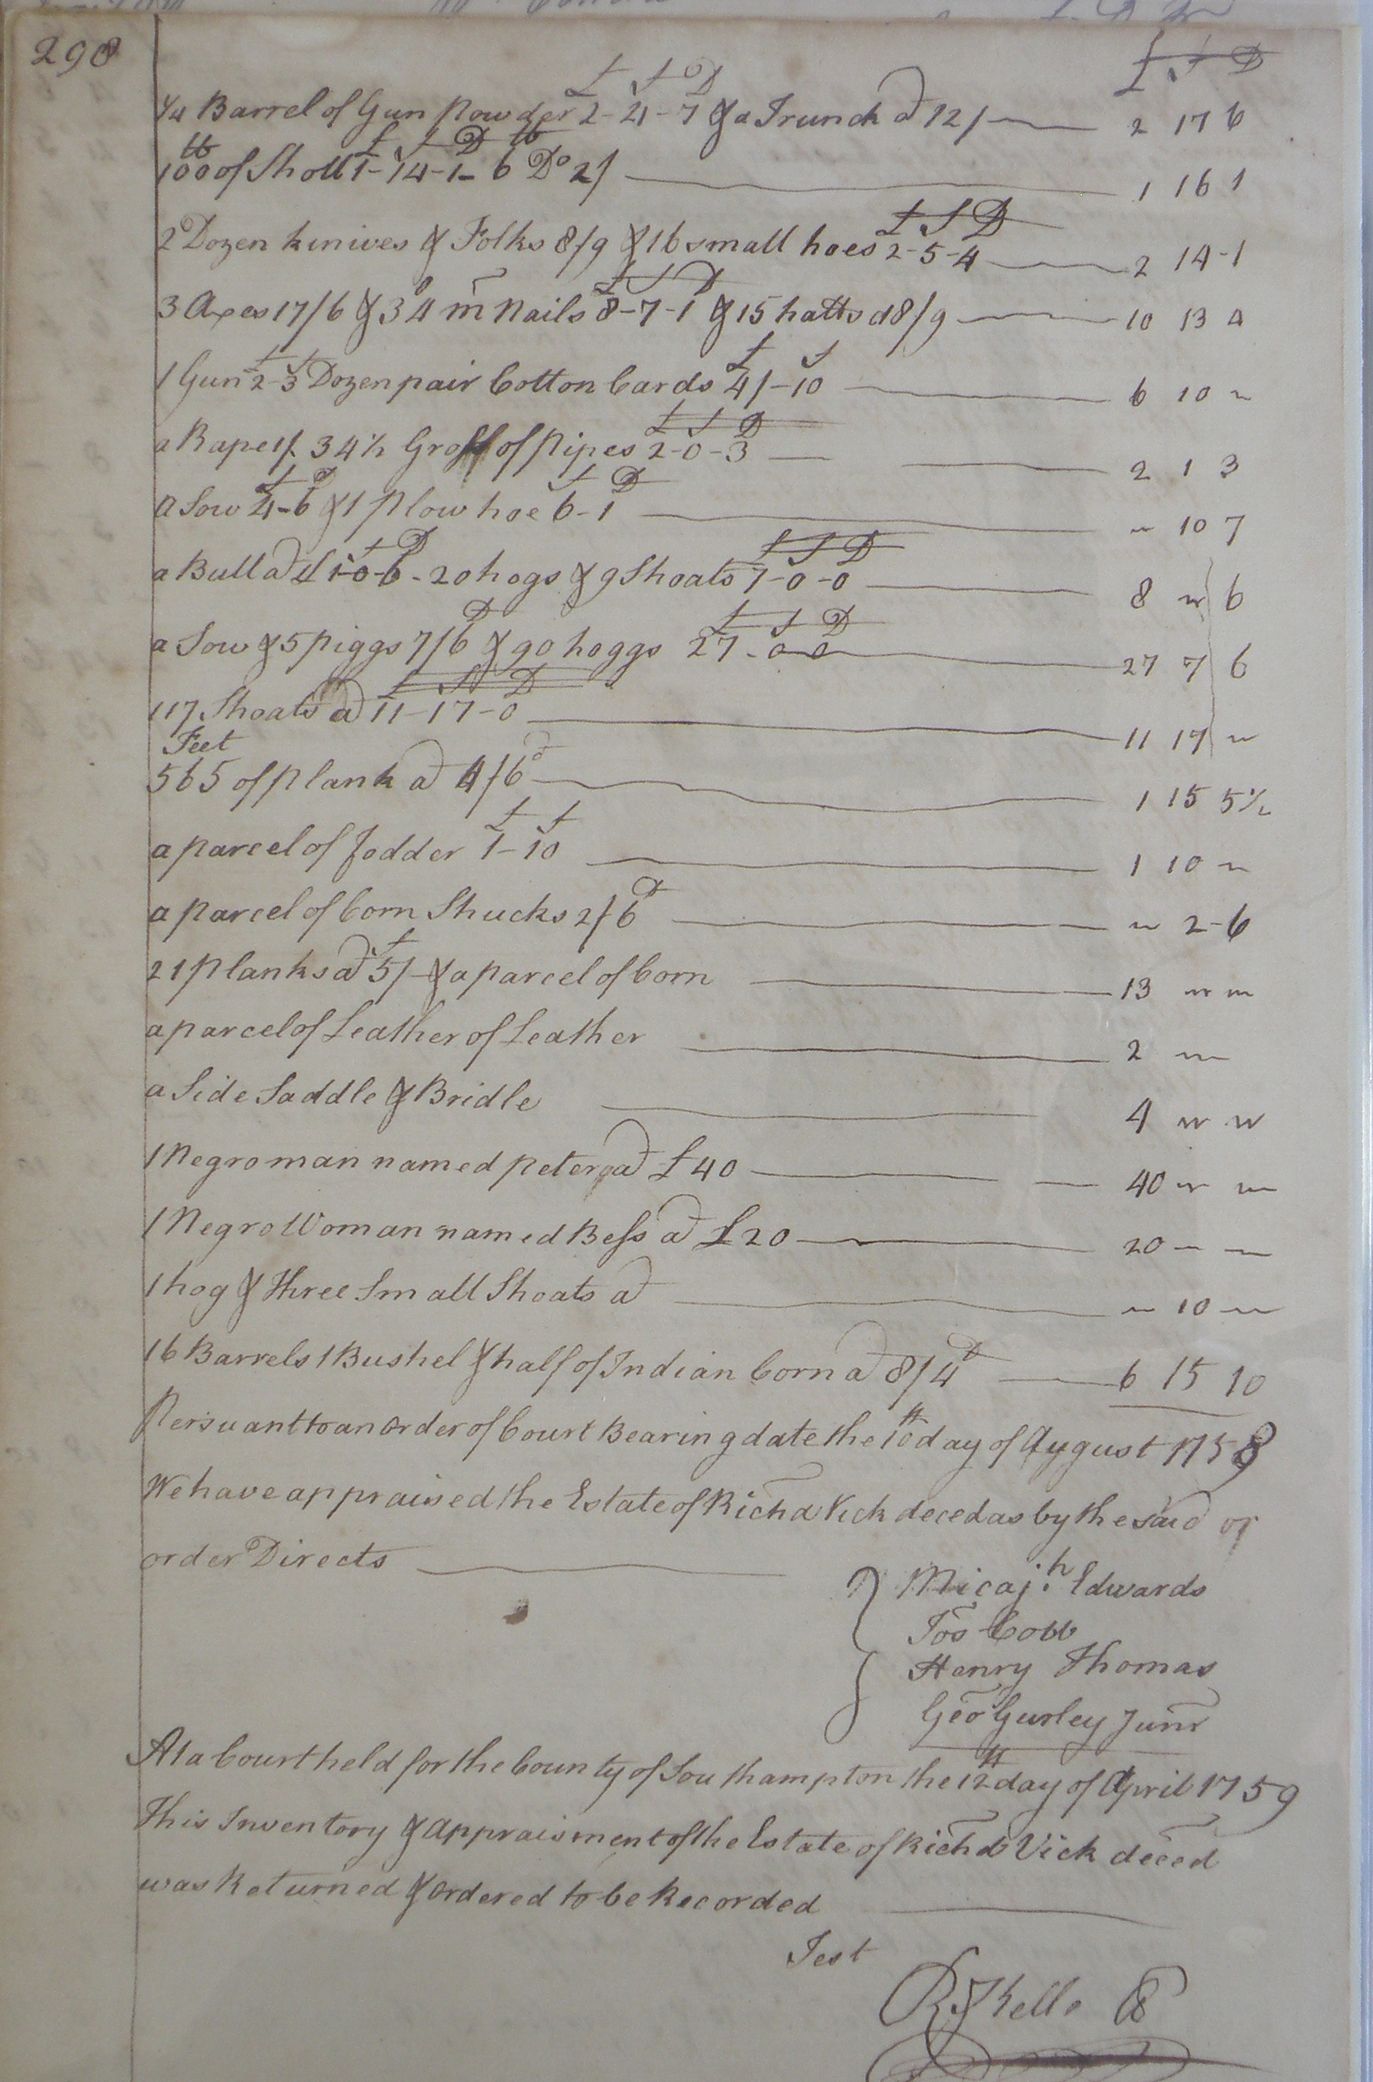 298
£ S D
£ S D
1/4 Barrel of Gun Powder 2-4-7 & a Trunck @ 12/ 2 17 6
lb £ S D lb
100 of Shott 1-14-1- 6 Do 2/ 1 16 1
£ S D
2 Dozen knives & Folks 8/9 & 16 small hoes 2-5-4 2 14-1
£ S D
3 Axes 17/6 & 34 m Nails 8-7-1 & 15 hatts 8/9 10 13 4
£ S £ S
1 Gun 2-3 Dozen pair Cotton Cards 4/-10 6 10 "
£ S D
a Rape 1/. 34 1/2 Gross of Pipes 2-0-3 2 1 3
S D S D
a Sow 4-6 & 1 Plow hoe 6-1 " 10 7
S D £ S D
a Bull @ £1-0-6-20 hogs & 9 Shoats 7-0-0 8 " 6
D £ S D
a Sow & 5 piggs 7/6 & 90 hoggs 27-0 0 27 7 6
£ S D
117 Shoats @ 11-17-0 11 17 "
Feet
565 of plank @ 4/6d 1 15 5 1/2
£ S
a parcel of fodder 1-10 1 10 "
a parcel of Corn Shucks 2/6D " 2-6
21 Planks @ 5/- & a parcel of Corn 13 " "
a parcel of Leather of Leather 2 "
a Side Saddle & Bridle 4 " "
1 Negro man named peter @ £40 40 " "
1 Negro Woman named Bess @ £20 20 " "
1 hog & Three Small Shoats @ " 10 "
16 Barrels 1 Bushel & half of Indian Corn @ 8/4D 6 15 10
Persuant to an order of Court Bearing date the 10th day of Aygust 1758
We have appraised the Estate of Richd Vick deced as by the said or
order Directs
Micajh. Edwards
Jos Cobb
Henry Thomas
Geo Gurley Junr
At a Court held for the County of Southampton the 12th day of April 1759
This Inventory & appraisment of the Estate of Richd Vick deced
was Returned & ordered to be Recorded
Test
R Kello